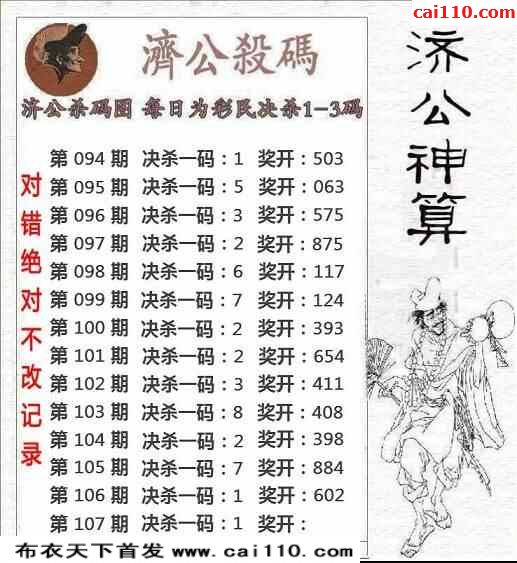 cai110.com
濟公殺碼
济公杀码图 每日为彩民决杀1-3码
济公神算
对错绝对不改记录
第 094 期 决杀一码：1 奖开：503
第 095 期 决杀一码：5 奖开：063
第 096 期 决杀一码：3 奖开：575
第 097 期 决杀一码：2 奖开：875
第 098 期 决杀一码：6 奖开：117
第 099 期 决杀一码：7 奖开：124
第 100 期 决杀一码：2 奖开：393
第 101 期 决杀一码：2 奖开：654
第 102 期 决杀一码：3 奖开：411
第 103 期 决杀一码：8 奖开：408
第 104 期 决杀一码：2 奖开：398
第 105 期 决杀一码：7 奖开：884
第 106 期 决杀一码：1 奖开：602
第 107 期 决杀一码：1 奖开：
布衣天下首发 www.cai110.com